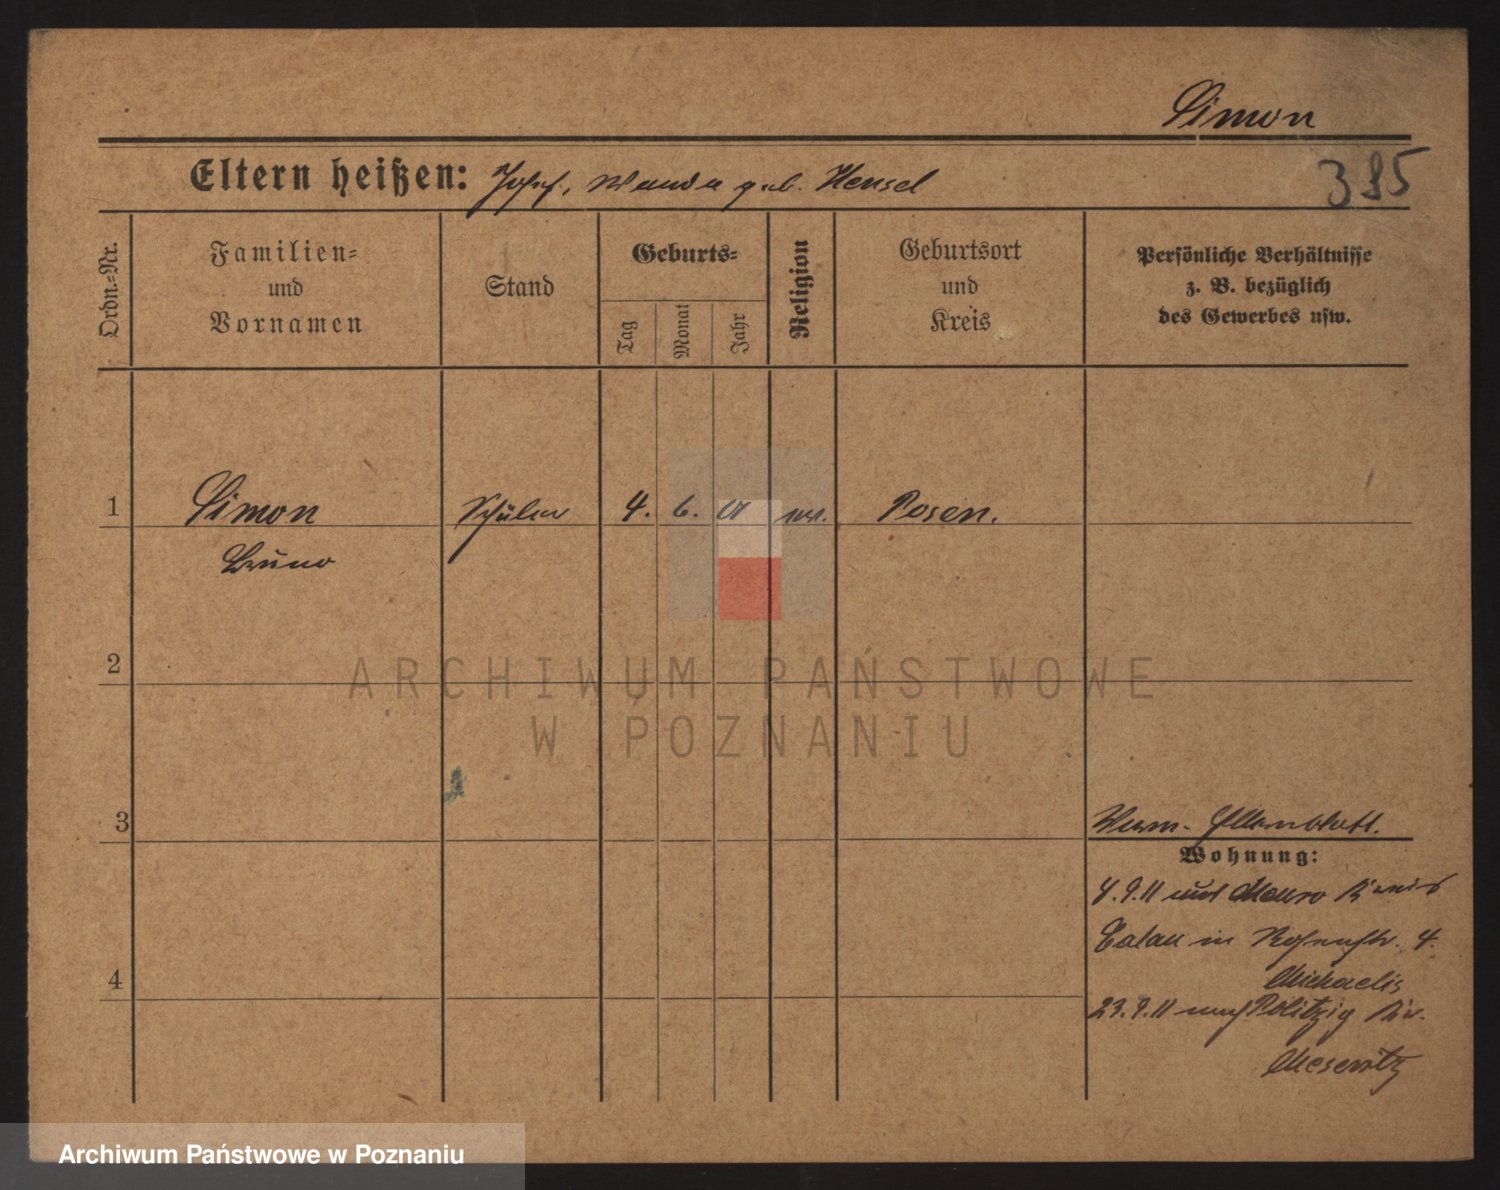 Simon
Eltern heißen: Josef, Wanda geb. Hensel
385
Ordn.-Nr.
Familien-
und
Vornamen
Stand
Geburts-
Tag
Monat
Jahr
Religion
Geburtsort
und
Kreis
Persönliche Verhältnisse
z. B. bezüglich
des Gewerbes usw.
1
Simon
Schüler
4. 6. 01
Posen.
Bruno
2
ARCHIWUM PAŃSTWOWE
W POZNANIU
3
Elternblatt.
Wohnung:
4.9.11
Kreis
Calau in Rosenstr. 4.
4
Michaelis
23.9.11 nach Politzig Kr.
Meseritz
Archiwum Państwowe w Poznaniu